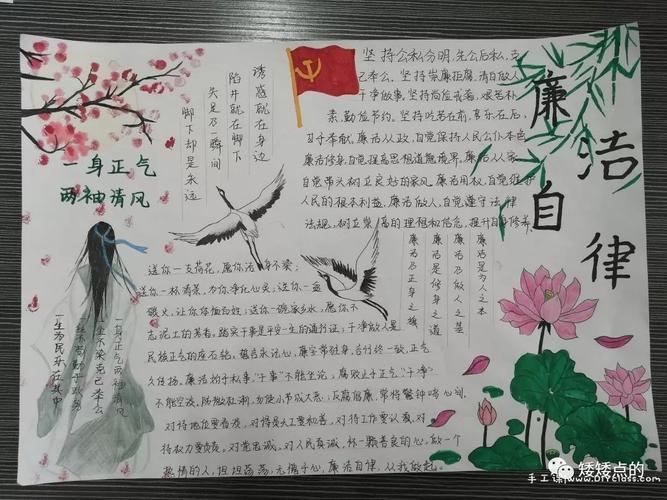 廉洁
自律
一身正气
两袖清风
诱惑就在身边
陷井就在脚下
失足乃一瞬间
脚下却是永远
坚持公私分明，先公后私，克
己奉公，坚持崇廉拒腐，清白做人
干净做事，坚持尚俭戒奢，艰苦朴
素，勤俭节约，坚持吃苦在前，享乐在后，
甘于奉献，廉洁从政，自觉保持人民公仆本色
廉洁修身，自觉提高思想道德境界，廉洁从家
自觉带头树立良好的家风，廉洁用权，自觉维护
人民的根本利益，廉洁做人，自觉遵守法律
法规，树立崇高的理想和信念，提升自身修养
廉洁是为人之本
廉洁乃做人之基
廉洁是修身之道
廉洁乃正身之
送你一支荷花，愿你洁身不染；
送你一杯清茶，为你净化心灵；送你一
让你
忘记工的著者，踏实干事是平安一生的通行证；干净做人是
民族正气的座右铭，誓言永记心，廉字常驻身，言行终一致，正气
久住扬，廉洁始于私事，"干事"不能空论，腐败止于正气，"干净"
不能空谈，防微杜渐，勿使小节成大恶；反腐倡廉，常将警钟鸣心间
对待地位要看淡，对得失人要和善，对待工作要认真，对
待权力要负责，对党忠诚，对人民真诚，怀一颗善良的心，做一个
热情的人，坦坦荡荡，无愧于心，廉洁自律，从我做起。
一身正气两袖清风
一尘不染克己奉公
一生为民乐在其中
矮矮点的
手工课www.DIYclass.com